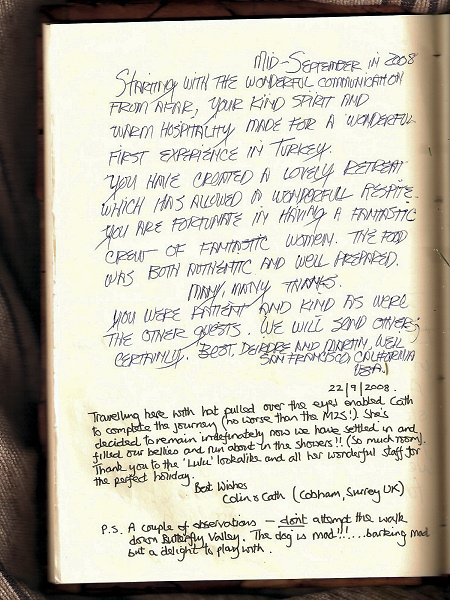 MID-SEPTEMBER IN 2008
STARTING WITH THE WONDERFUL COMMUNICATION
FROM AFAR, YOUR KIND SPIRIT AND
WARM HOSPITALITY MADE FOR A WONDERFUL
FIRST EXPERIENCE IN TURKEY.
YOU HAVE CREATED A LOVELY RETREAT
WHICH HAS ALLOWED A WONDERFUL RESPITE.
YOU ARE FORTUNATE IN HAVING A FANTASTIC
CREW OF FANTASTIC WOMEN. THE FOOD
WAS BOTH AUTHENTIC AND WELL PREPARED.
MANY, MANY THANKS.
YOU WERE PATIENT AND KIND AS WERE
THE OTHER GUESTS. WE WILL SEND OTHERS,
CERTAINLY. BEST, DEIRDRE AND MARTIN,
SAN FRANCISCO, CALIFORNIA
USA.
22/9/2008.
Travelling here with hat pulled over the eyes enabled Cath
to complete the journey (no worse than the M25!) She's
decided to remain indefinately now we have settled in and
filled our bellies and run about in the showers!! (So much room).
Thank you to the 'Lulu' lookalike and all her wonderful staff for
the perfect holiday.
Best Wishes
Colin & Cath (Cobham, Surrey UK)
P.S. A couple of observations — don't attempt the walk
down Butterfly Valley. The dog is mad!!!....barking mad
but a delight to play with.